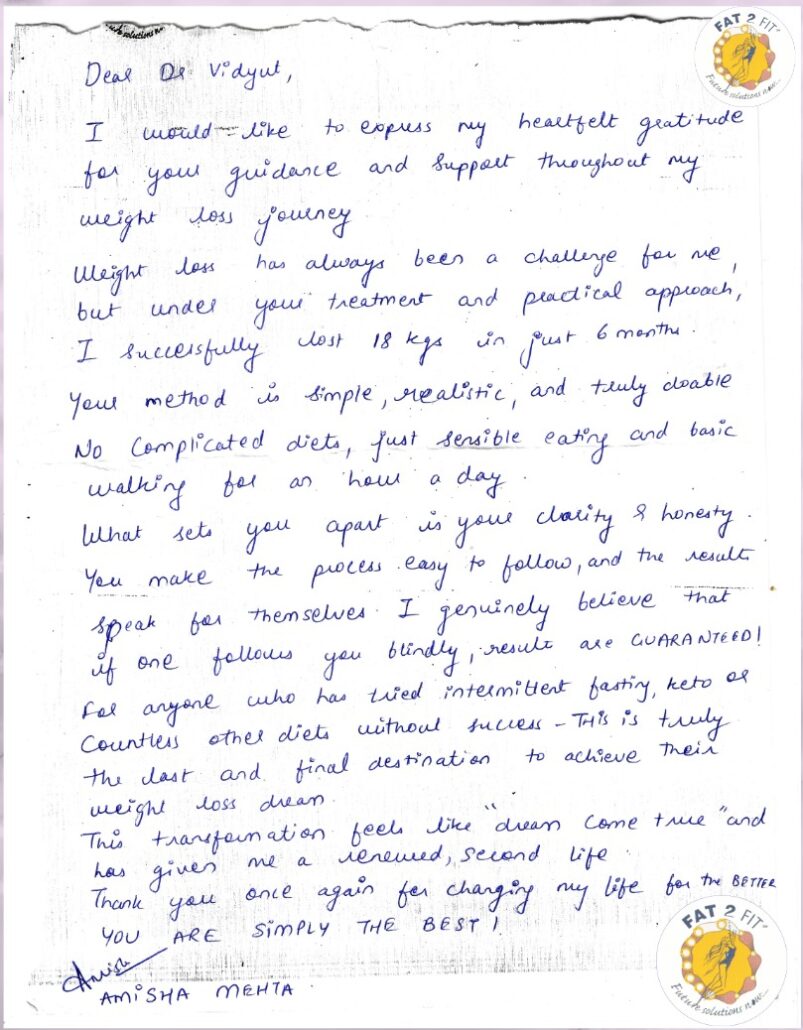 FAT 2 FIT
Future solutions now...
Dear Dr Vidyut,
I would like to express my heartfelt gratitude
for your guidance and support throughout my
weight loss journey
Weight loss has always been a challenge for me,
but under your treatment and practical approach,
I successfully lost 18 kgs in just 6 months.
Your method is simple, realistic, and truly doable
No complicated diets, just sensible eating and basic
walking for an hour a day.
What sets you apart is your clarity & honesty.
You make the process easy to follow, and the results
speak for themselves. I genuinely believe that
if one follows you blindly, results are GUARANTEED!
For anyone who has tried intermittent fasting, keto or
countless other diets without success - THIS is truly
the last and final destination to achieve their
weight loss dream.
This transformation feels like "dream come true" and
has given me a renewed, second life.
Thank you once again for changing my life for the BETTER
YOU ARE SIMPLY THE BEST!
Amisha
AMISHA MEHTA
FAT 2 FIT
Future solutions now...